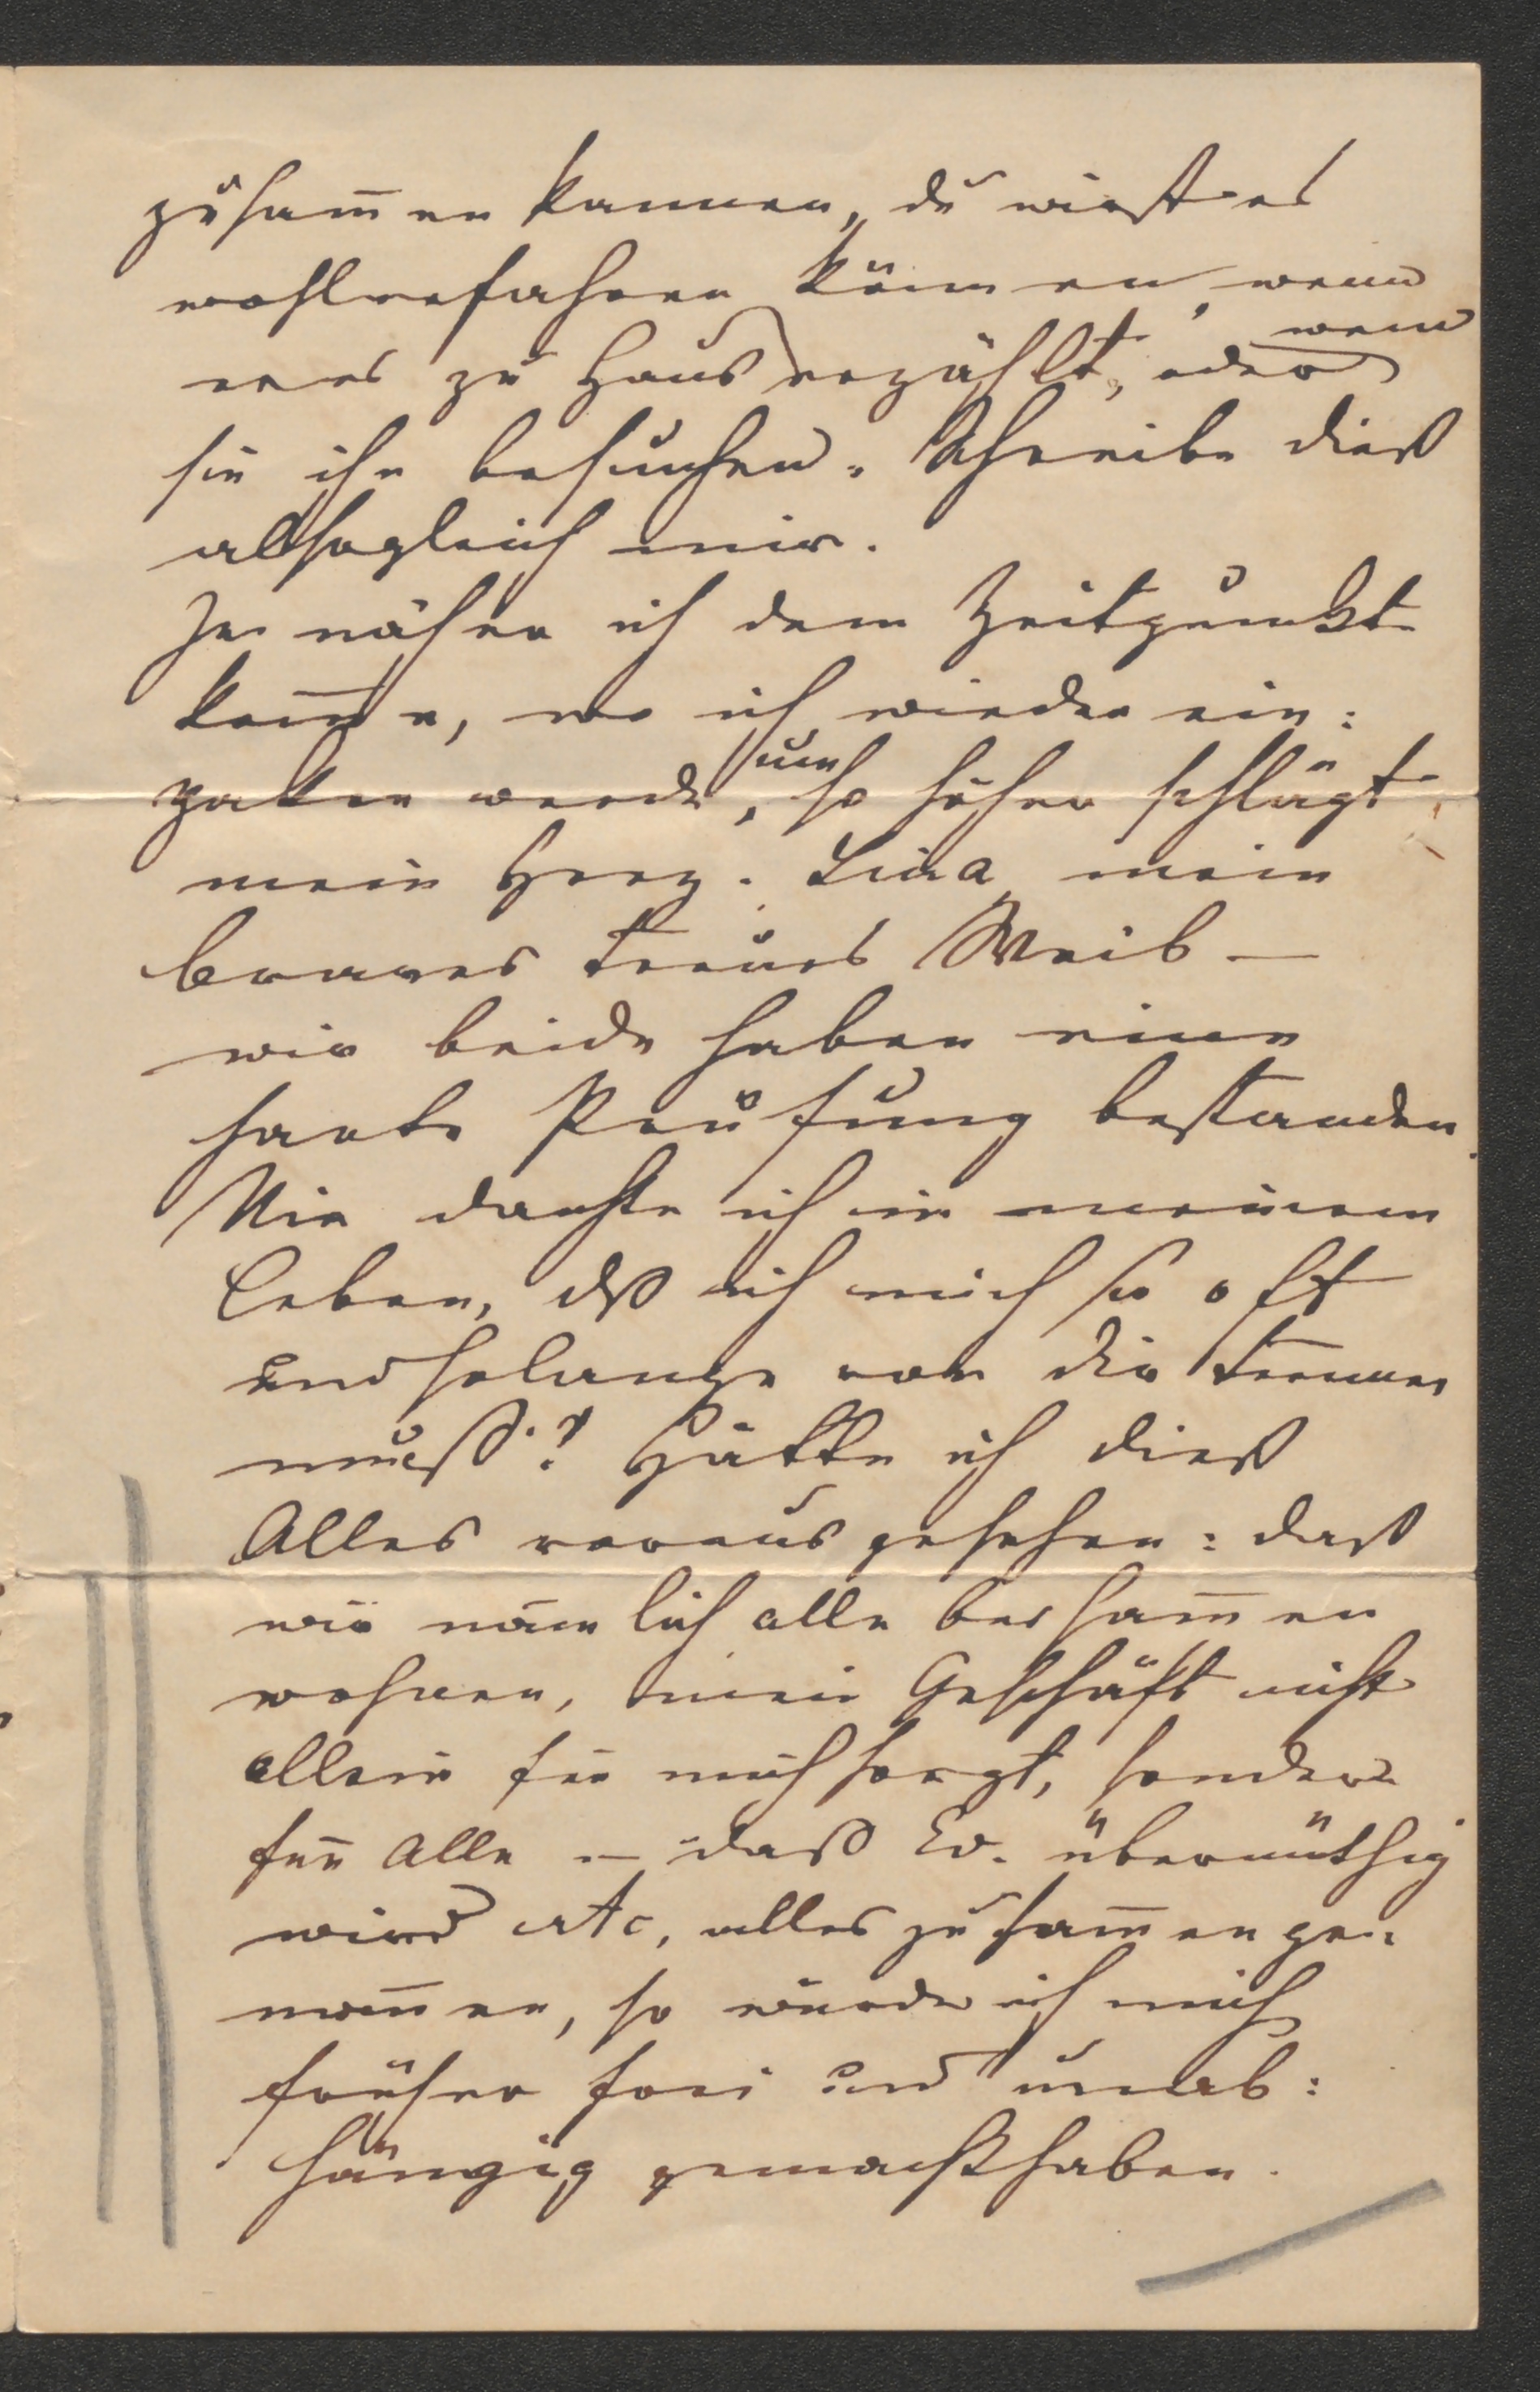 zusam̄en kamen, du wirst es
wohl erfahren können, wenn
er es zu Haus erzählt, oder wenn
sie ihn besuchen. Schreibe dieß
alsogleich mir.
Je näher ich dem Zeitpunkt
kom̄e, wo ich wieder ein:
paken werde, um so höher schlägt
mein Herz. Lina mein
braves treues Weib —
wir beide haben eine
harte Prüfung bestanden.
Nie dachte ich in meinem
Leben, dß ich mich so oft
und solange von dir trennen
muß? Hätte ich dieß
Alles voraus gesehen: daß
wir nämlich alle beisam̄en
wohnen, mein Geschäft nicht
allein für mich sorgt, sondern
für Alle — daß Ed. übermüthig
wird etc, alles zusam̄enge:
nom̄en, so würde ich mich
früher frei und unab:
hängig gemacht haben.